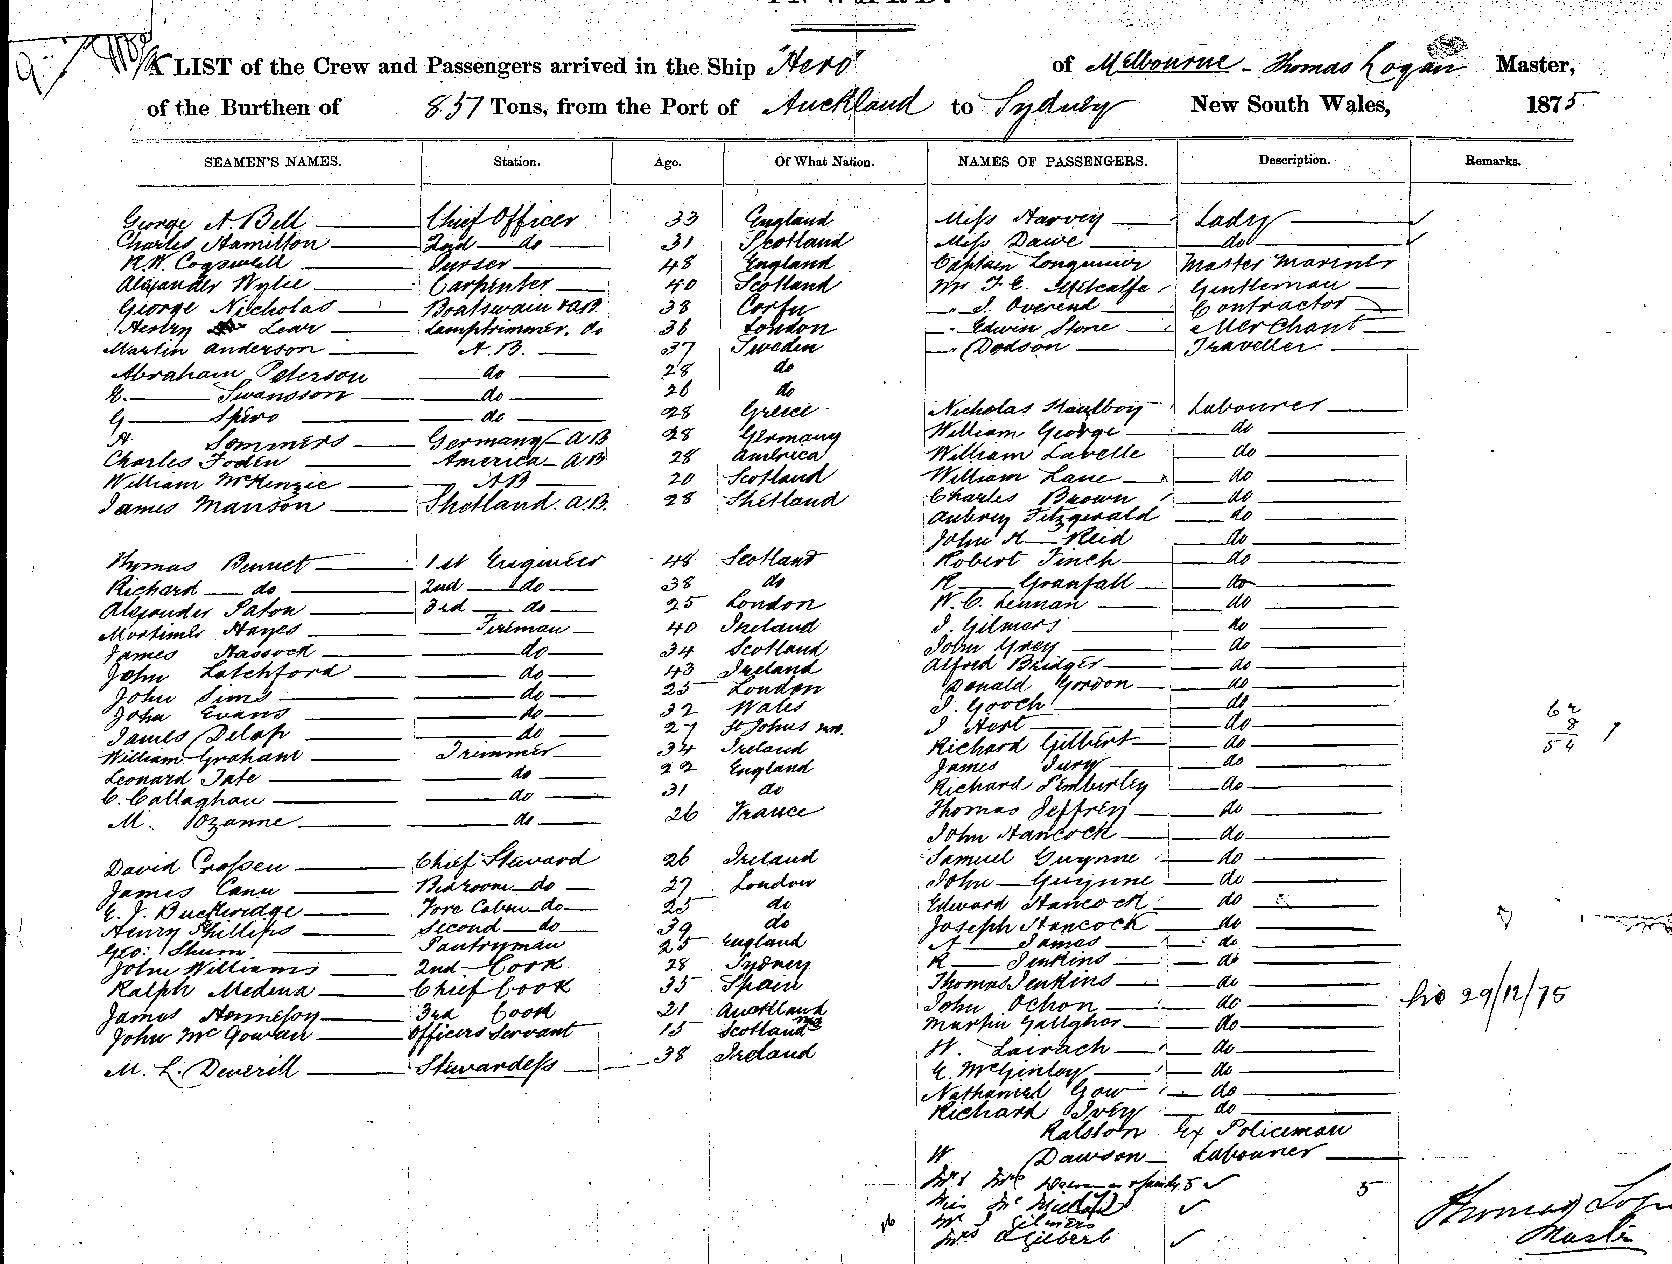 A LIST of the Crew and Passengers arrived in the Ship "Hero" of Melbourne - Thomas Logan Master,
of the Burthen of 857 Tons, from the Port of Auckland to Sydney New South Wales, 1875
SEAMEN'S NAMES. Station. Age. Of What Nation. NAMES OF PASSENGERS. Description. Remarks.
George A. Bell Chief Officer 33 England Miss Harvey Lady
Charles Hamilton 2nd do 31 Scotland Miss Dawe do
R.W. Cogswell Purser 48 England Captain Master Mariner
Alexander Wylie Carpenter 40 Scotland Mr F. C. Metcalfe Gentleman
George Nicholas Boatswain & A.B. 38 Corfu " J. Overend Contractor
Henry Loar Lamptrimmer. do 36 London " Edwin Stone Merchant
Martin Anderson A.B. 37 Sweden " Dodson Traveller
Abraham Peterson do 28 do
Swansson do 26 do
G Spiro do 28 Greece Nicholas Labourer
A Sommers Germany A.B 28 Germany William George do
Charles Foden America A.B 28 America William Lavelle do
William McKenzie A.B 20 Scotland William Lane do
James Manson Shetland. A.B. 28 Shetland Charles Brown do
Aubrey Fitzgerald do
John H Reid do
Thomas Bennet 1st Engineer 48 Scotland Robert Finch do
Richard do 2nd do 38 do R Granfall do
Alexander Paton 3rd do 25 London W. C. Lennan do
Mortimer Hayes Fireman 40 Ireland J. Gilmers do
James Hassock do 34 Scotland John Grey do
John Latchford do 43 Ireland Alfred Bridger do
John Sims do 25 London Donald Gordon do
John Evans do 32 Wales J. Gooch do
James Delap do 27 St Johns J Hort do
William Graham Trimmer 34 Ireland Richard Gilbert do
Leonard Tate do 22 England James Jury do
C. Callaghan do 31 do Richard Pemberley do
M. Ozanne do 26 France Thomas Jeffrey do
John Hancock do
David Crossen Chief Steward 26 Ireland Samuel Guynne do
James Cann Bedroom do 27 London John Guynne do
E. J. Buckeridge Fore Cabin do 25 do Edward Hancock do
Henry Phillips Second do 39 do Joseph Hancock do
Geo: Shum Pantryman 25 England A James do
John Williams 2nd Cook 28 Sydney R Jenkins do
Ralph Medina Chief Cook 35 Spain Thomas Jenkins do
James Hennessy 3rd Cook 21 Auckland John Ochon do
John McGowan Officers Servant 15 Scotland Martin Gallagher do
M. L. Deverill Stewardess 38 Ireland W. Lairach do
E. McGinley do
Nathaniel Gow do
Richard Ivey do
Ralston Ex Policeman
W Dawson Labourer
Mr & Mrs & family 5 5
Miss
Mr J Gilmers
Mrs Gilbert
62
8
54
29/12/75
Thomas
Master